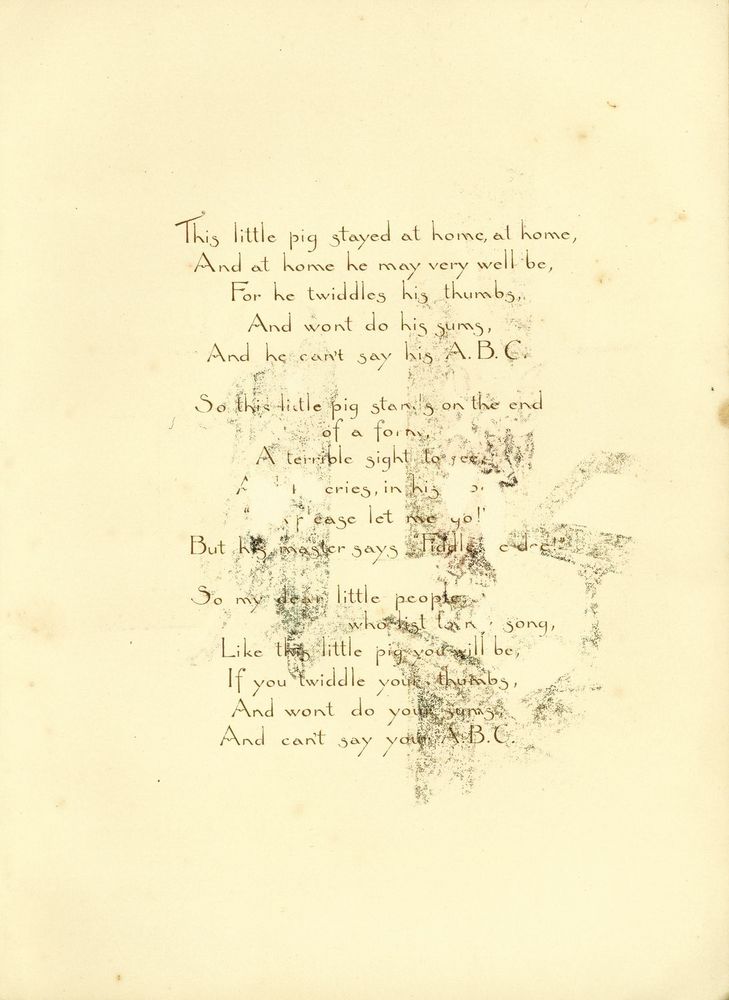 This little pig stayed at home, at home,
And at home he may very well be,
For he twiddles his thumbs,
And wont do his sums,
And he can't say his A.B.C.
So this little pig stands on the end
of a form,
A terrible sight to see,
cries, in his
please let me go!"
But his master says "Fiddle
So my dear little people
who list to my song,
Like this little pig you will be,
If you twiddle your thumbs,
And wont do your sums,
And can't say your A.B.C.